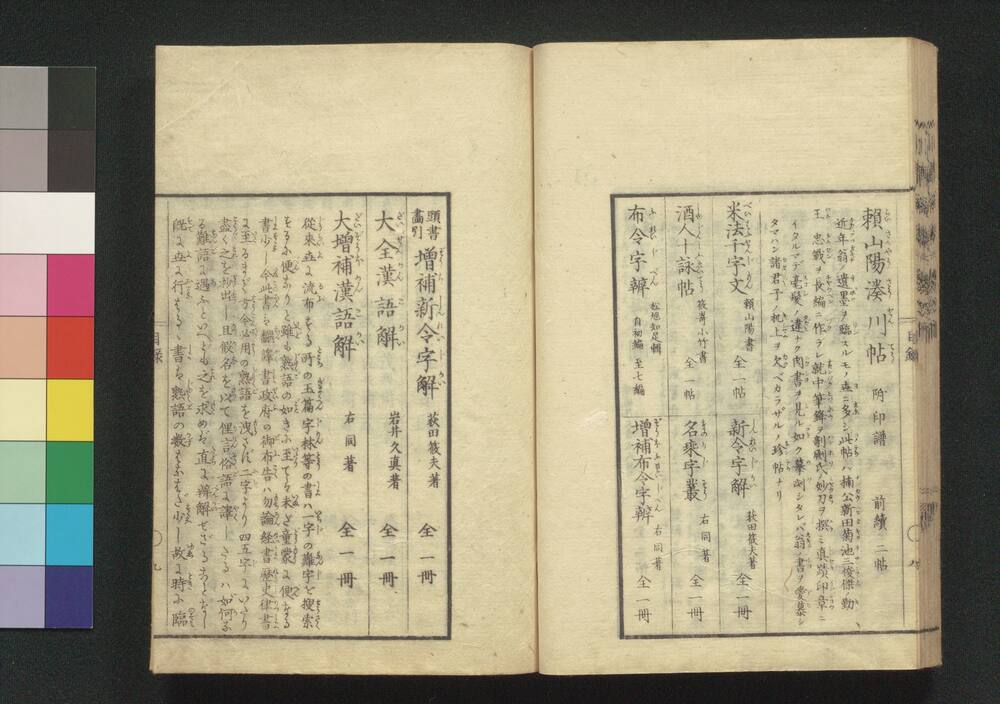 賴山陽湊川帖 附印譜 前續二帖
近年翁ノ遺墨ヲ臨スルモノ世ニ多シ此帖ハ楠公新田菊池三俊傑ノ勤
王忠戰ヲ長編ニ作ラレ就中筆鋒ヲ剞劂氏ノ妙刀ヲ撰ミ眞蹟印章ニ
イタルマデ毫髮ノ違ナク肉書ヲ見ル如ク摹刻シタレバ翁ノ書ヲ愛慕シ
タマハン諸君子ノ机上ヲ欠ベカラザルノ珍帖ナリ
米法千字文 賴山陽書 全一帖
新令字解 荻田筱夫著 全一冊
酒人十詠帖 筱嵜小竹書 全一帖
名乘字叢 右同著 全一冊
布令字辨 松旭知足輯 自初編至七編
增補布令字辨 右同著 全一冊
目錄
八
頭書畵引 增補新令字解 荻田筱夫著 全一冊
大全漢語解 岩井久眞著 全一冊
大增補漢語解 右同著 全一冊
從來世に流布する所の玉篇字林等の書ハ一字の難字を搜索
するに便なりと雖も熟語の如きに至てハ未だ童蒙に便なる
書少し今此書ハ飜譯書政府の御布告ハ勿論經書歷史律書
に至るまで方今必用の熟語を洩さず二字より四五字にいたり
盡く之を抄出し且假名を以て俚言俗語に譯したるハ如何なる
る難語に遇ふといへども之を求めバ直に辨解せざることなし
既に世に行はるゝ書ハ熟語の數もなはだ少し故に時に臨
目錄
九